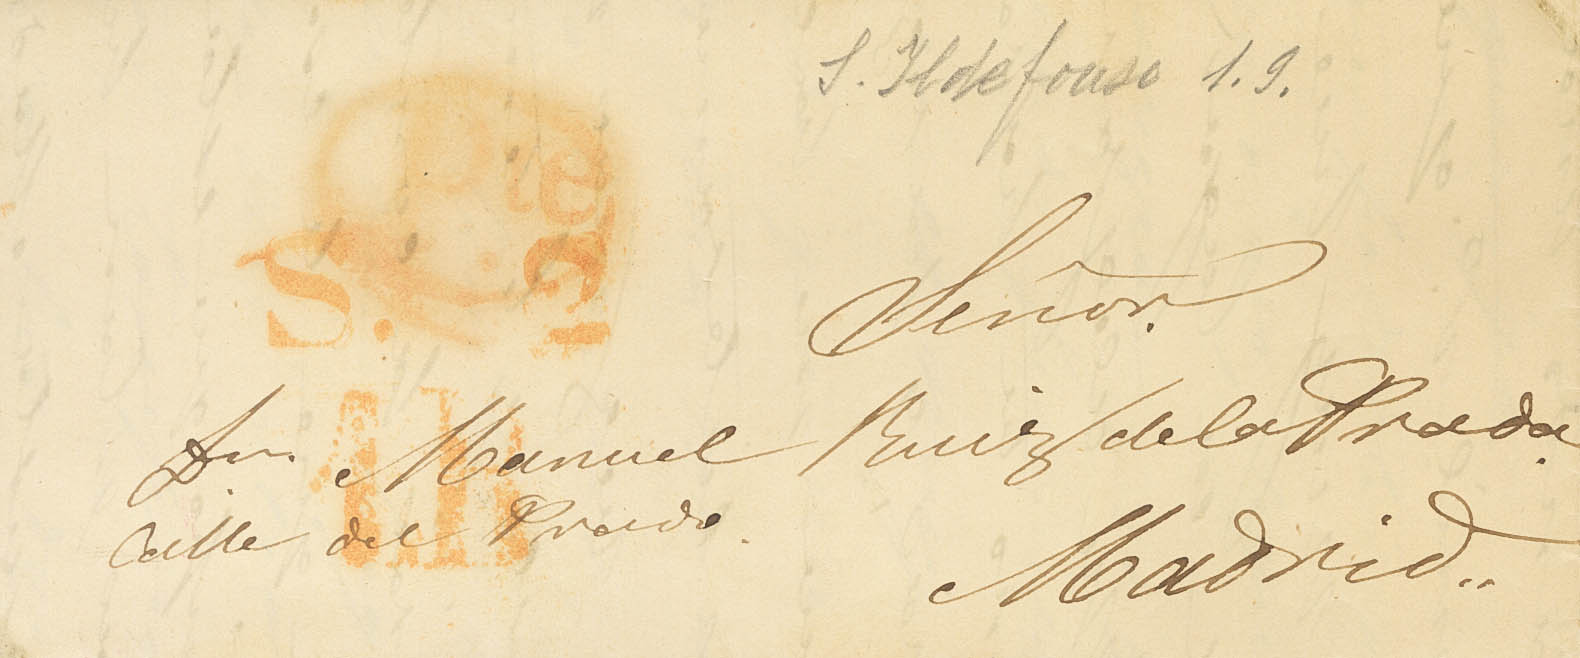 S. Ildefonso 1.9.
Señor.
Dn. Manuel Ruiz de la Prada.
Calle del Prado.
Madrid..
S.